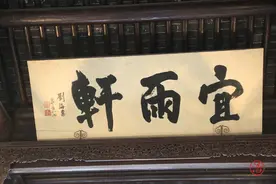 宜雨軒
劉海粟